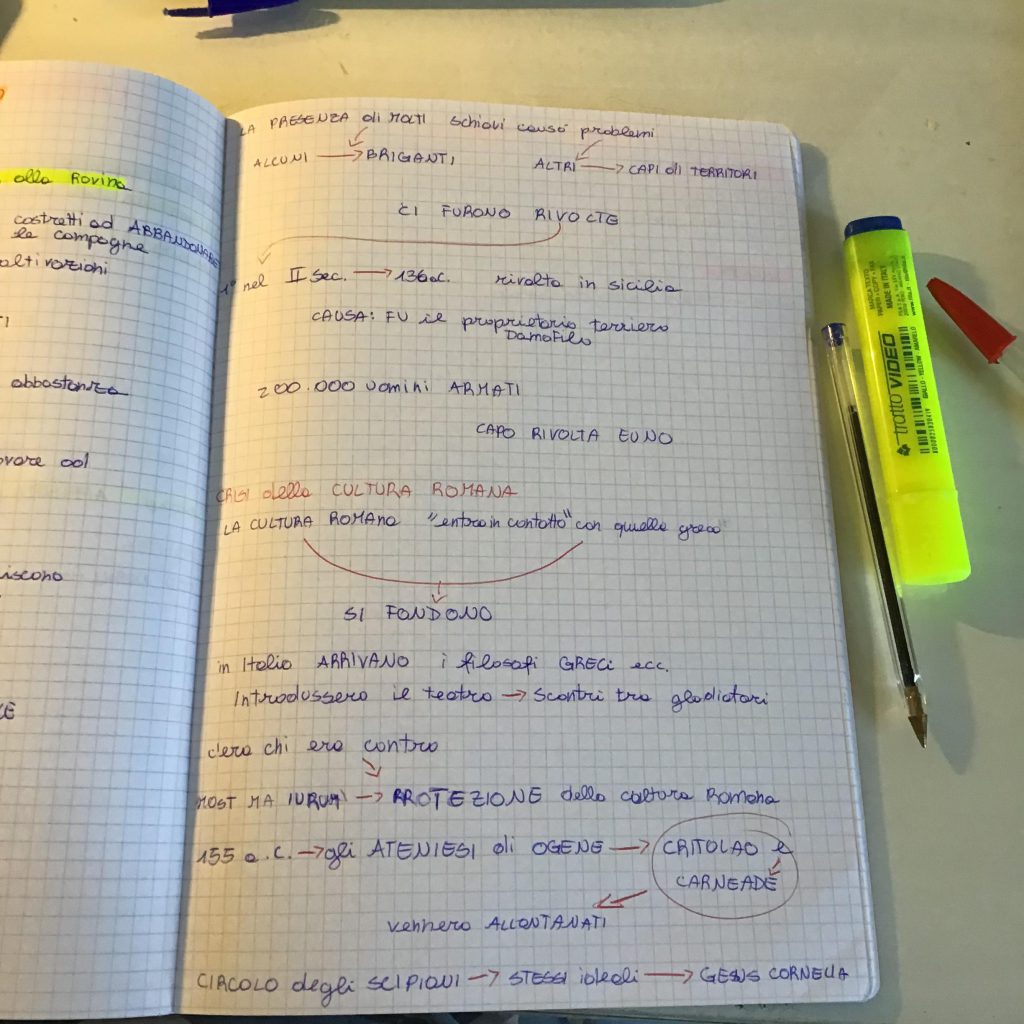 alla Rovina
costretti ad ABBANDONARE
le campagne
abbastanza
LA PRESENZA di molti schiavi causò problemi
ALCUNI → BRIGANTI
ALTRI → CAPI di TERRITORI
CI FURONO RIVOLTE
1° nel II sec. → 136 a.C. rivolta in sicilia
CAUSA: FU il proprietario terriero
DamoFilo
200.000 uomini ARMATI
CAPO RIVOLTA EUNO
CRISI della CULTURA ROMANA
LA CULTURA ROMANA "entra in contatto" con quella greca
SI FONDONO
in Italia ARRIVANO i filosofi GRECI ecc.
Introdussero il teatro → scontri tra gladiatori
c'era chi era contro
→ PROTEZIONE della cultura Romana
155 a.C. → gli ATENIESI di OGENE → CRITOLAO e
CARNEADE
vennero ALLONTANATI
CIRCOLO degli SCIPIONI → STESSI ideali → GENS CORNELIA
tratto VIDEO
MADE IN ITALY